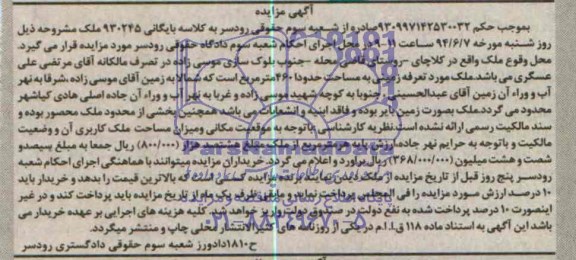 آگهی مزایده
بموجب حکم ۹۳۰۹۹۷۱۴۲۵۳۰۰۳۲ صادره از شعبه سوم حقوقی رودسر به کلاسه بایگانی ۹۳۰۲۴۵ ملک مشروحه ذیل
روز شنبه مورخه ۹۴/۶/۷ ساعت ۱۱-۹ در محل اجرای احکام شعبه سوم دادگاه حقوقی رودسر مورد مزایده قرار می گیرد.
محل وقوع ملک واقع در کلاچای -روستای قاضی محله -جنوب بلوک سازی موسی زاده در تصرف مالکانه آقای مرتضی علی
عسگری می باشد.ملک مورد تعرفه زمینی به مساحت حدودا ۴۶۰ مترمربع است که شمالا به زمین آقای موسی زاده ،شرقا به نهر
آب و وراء آن زمین آقای عبدالحسینی، جنوبا به کوچه شهید موسی زاده و غربا به نهر آب و وراء آن جاده اصلی هادی کیاشهر
محدود می گردد.ملک بصورت زمین بایر بوده و فاقد ابنیه و انشعابات می باشد همچنین بخشی از محدود ملک محصور بوده و
سند مالکیت رسمی ارائه نشده است.نظریه کارشناسی :باتوجه به موقعیت مکانی ومیزان مساحت ملک کاربری آن و وضعیت
مالکیت و باتوجه به حرایم نهر جاده،ارزش پایه هر مترمربع از ملک مبلغ هشتصد هزار (۸۰۰/۰۰۰) ریال جمعا به مبلغ سیصدو
شصت و هشت میلیون (۳۶۸/۰۰۰/۰۰۰) ریال برآورد و اعلام می گردد.خریداران مزایده میتوانند با هماهنگی اجرای احکام شعبه
رودسر پنج روز قبل از تاریخ مزایده از ملک دیدن نمایند برنده مزایده کسی است که بالاترین قیمت را بدهد و خریدار باید
۱۰ درصد ارزش مورد مزایده را فی المجلس پرداخت نماید و مابقی ظرف یک ماه از تاریخ مزایده باید پرداخت کند و در غیر
اینصورت ۱۰ درصد پرداخت شده به نفع دولت در صندوق دولت واریز خواهد شد. کلیه هزینه های اجرایی بر عهده خریدار می
باشد این آگهی به استناد ماده ۱۱۸ ق.ا.ا.م در یکی از روزنامه های کثیرالانتشار محلی چاپ و منتشر میگردد.
ح۱۸۱۰ دادورز شعبه سوم حقوقی دادگستری رودسر